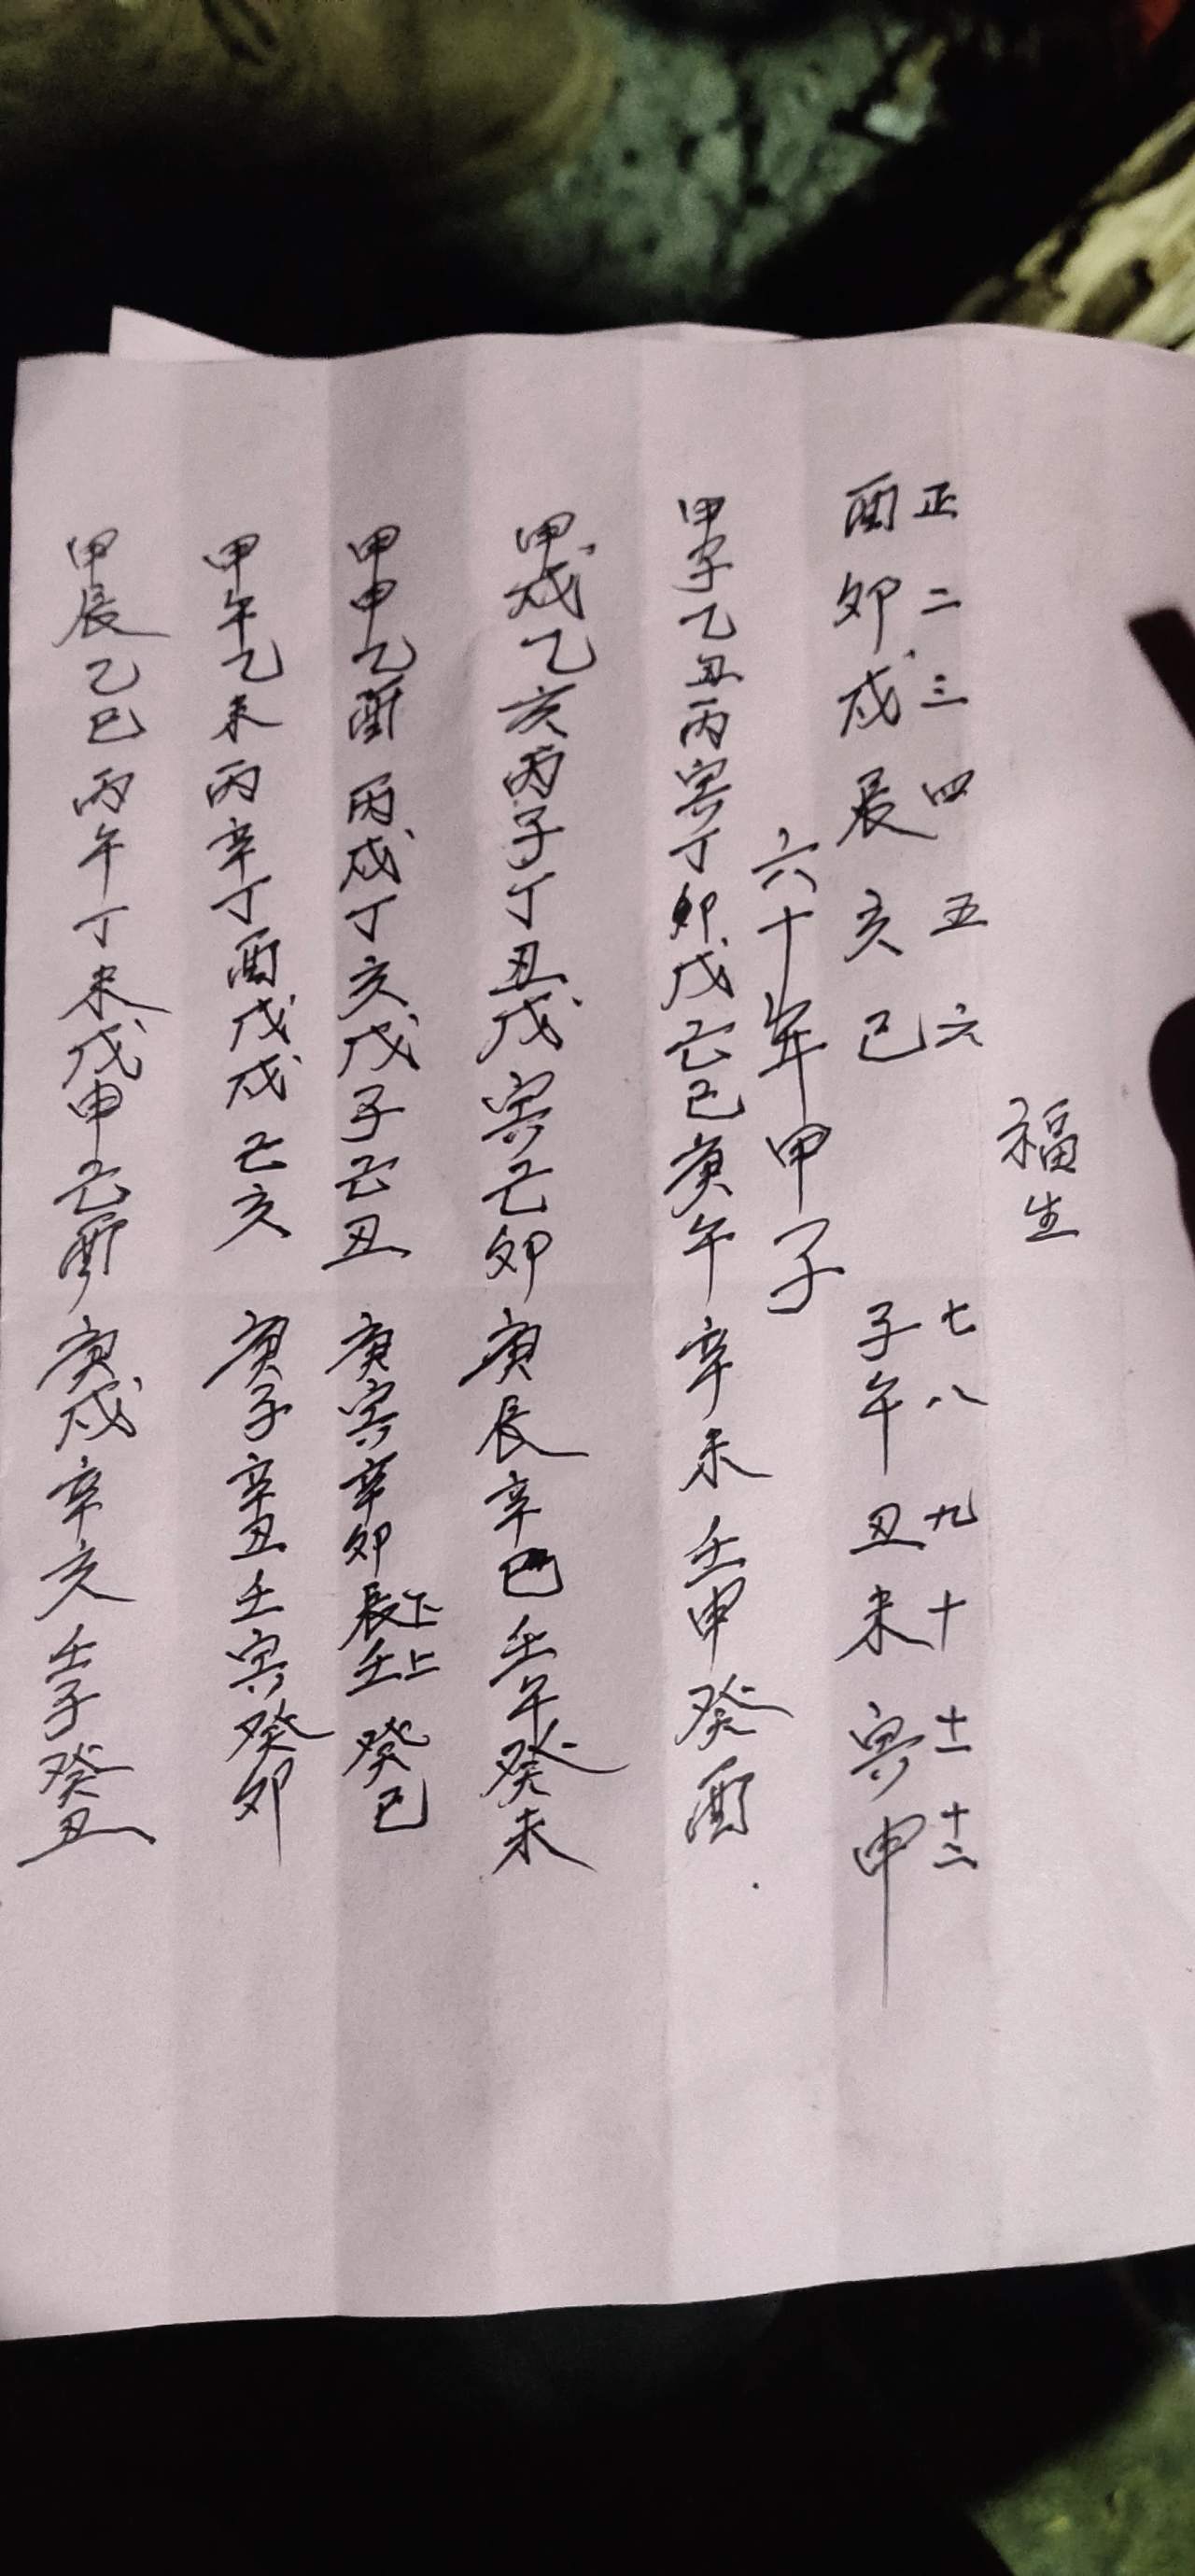 福生
正 二 三 四 五 六 七 八 九 十 十一 十二
酉 卯 戌 辰 亥 巳 子 午 丑 未 寅 申
六十年甲子
甲子乙丑丙寅丁卯戊己巳庚午辛未壬申癸酉
甲戌乙亥丙子丁丑戊寅己卯庚辰辛巳壬午癸未
甲申乙酉丙戌丁亥戊子己丑庚寅辛卯辰下壬上癸巳
甲午乙未丙辛丁酉戊戌己亥庚子辛丑壬寅癸卯
甲辰乙巳丙午丁未戊申己酉庚戌辛亥壬子癸丑